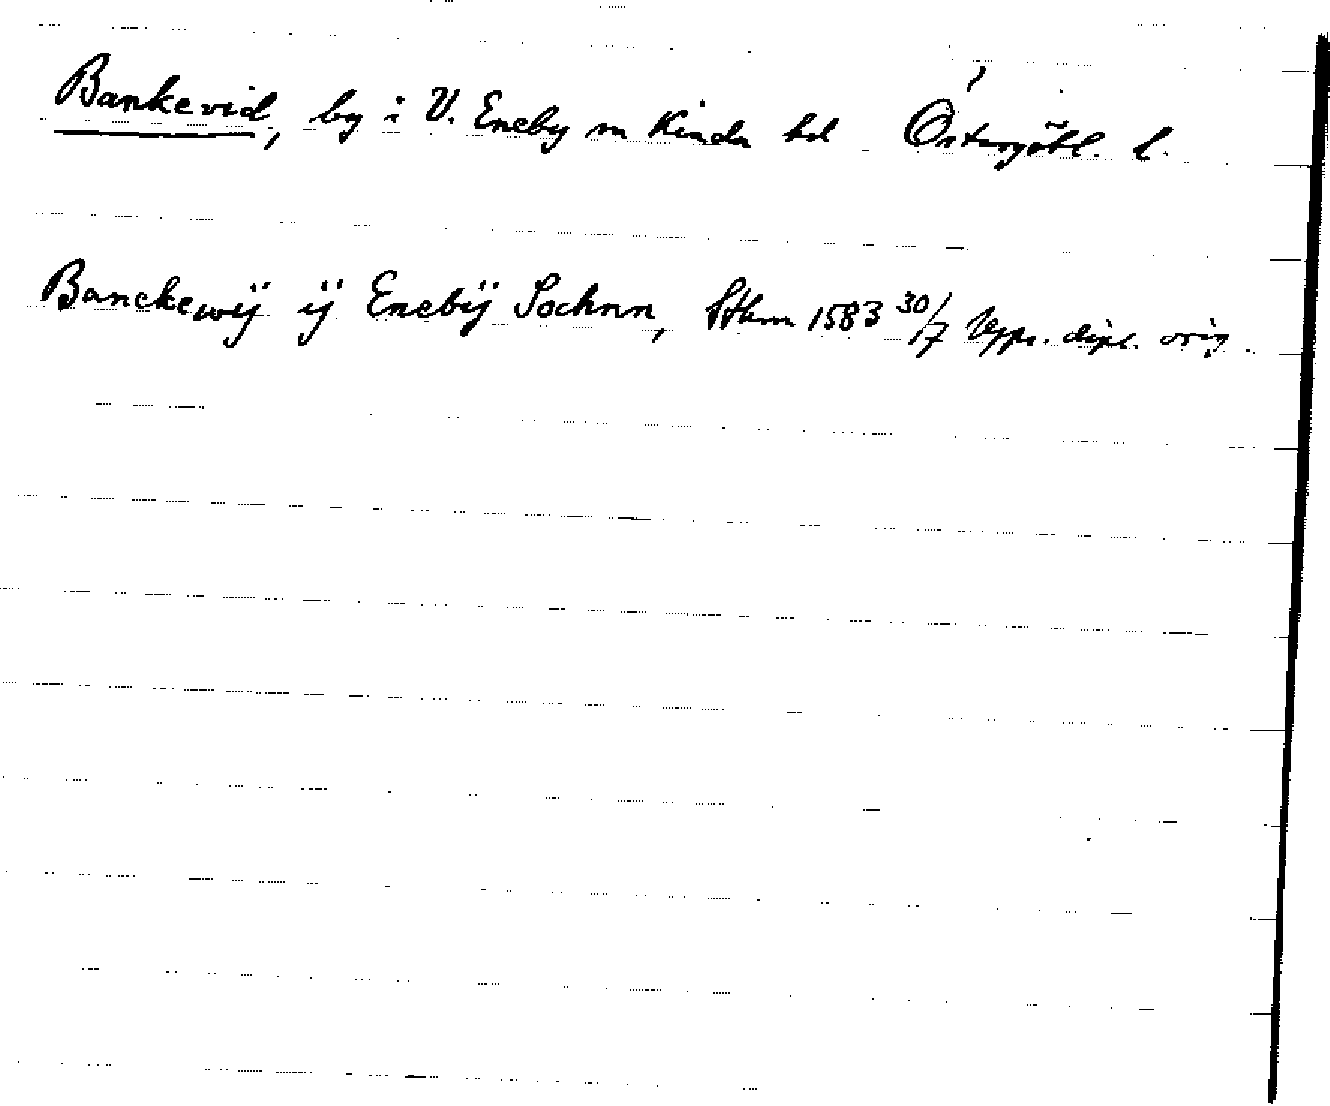 Bankevid, by i V. Eneby sn Kinda hd Östergötl. l.
Banckewÿ ÿ Enebÿ Sochnn, Sthm 1583 30/7 Upps. dipl. orig.